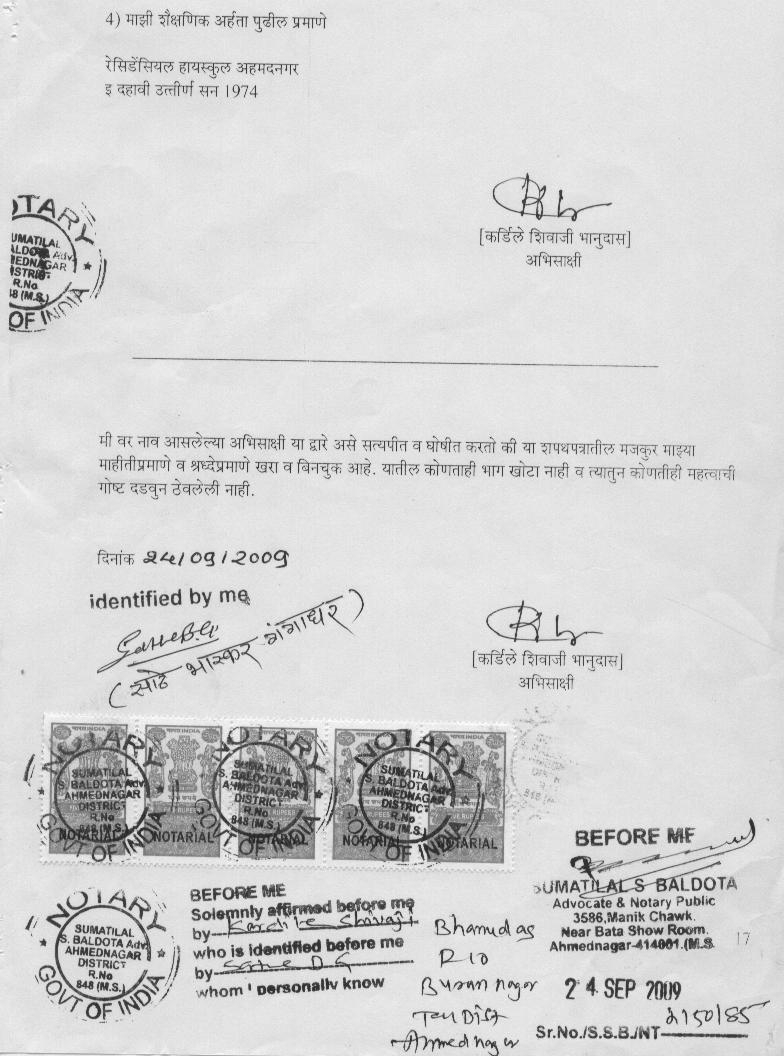 4) माझी शैक्षणिक अर्हता पुढील प्रमाणे
रेसिडेंसियल हायस्कुल अहमदनगर
इ दहावी उत्तीर्ण सन 1974
[कर्डिले शिवाजी भानुदास]
अभिसाक्षी
NOTARY
SUMATILAL
BALDOTA Adv.
AHMEDNAGAR
DISTRICT
R.No
848 (M.S.)
OF INDIA
मी वर नाव आसलेल्या अभिसाक्षी या द्वारे असे सत्यपीत व घोषीत करतो की या शपथपत्रातील मजकुर माझ्या
माहीतीप्रमाणे व श्रध्देप्रमाणे खरा व बिनचुक आहे. यातील कोणताही भाग खोटा नाही व त्यातुन कोणतीही महत्वाची
गोष्ट दडवुन ठेवलेली नाही.
दिनांक 24/09/2009
identified by me
(साठे भास्कर गंगाधर)
[कर्डिले शिवाजी भानुदास]
अभिसाक्षी
NOTARY
SUMATILAL
S. BALDOTA Adv.
AHMEDNAGAR
DISTRICT
R.No
848 (M.S.)
GOVT OF INDIA
NOTARIAL
NOTARIAL
NOTARY
SUMATILAL
S. BALDOTA Adv.
AHMEDNAGAR
DISTRICT
R.No
848 (M.S.)
GOVT OF INDIA
NOTARIAL
NOTARY
SUMATILAL
S. BALDOTA Adv.
AHMEDNAGAR
DISTRICT
R.No
848 (M.S.)
GOVT OF INDIA
NOTARIAL
NOTARIAL
NOTARY
SUMATILAL
S. BALDOTA Adv.
AHMEDNAGAR
DISTRICT
R.No
848 (M.S.)
GOVT OF INDIA
BEFORE ME
Solemnly affirmed before me
by Kardile Shivaji
who is identified before me
by
whom I personally know
Bhanudas
R/o
Buran nagar
Tal Dist
Ahmednagar
BEFORE ME
SUMATILAL S BALDOTA
Advocate & Notary Public
3586,Manik Chawk.
Near Bata Show Room.
Ahmednagar-414001.(M.S.
17
24 SEP 2009
Sr.No./S.S.B./NT 2150/85